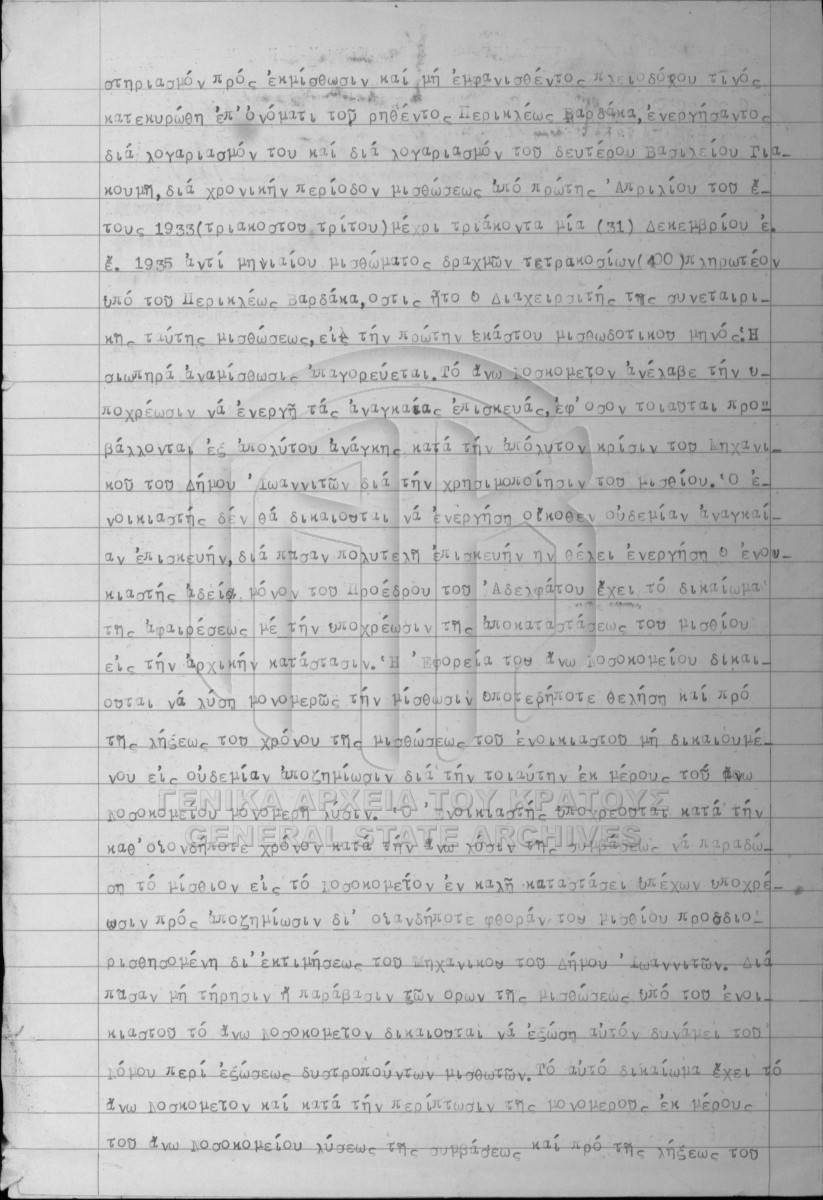 στηριασμόν πρός ἐκμίσθωσιν καί μή ἐμφανισθέντος πλειοδόχου τινός
κατεκυρώθη ἐπ'ὀνόματι τοῦ ρηθέντος Περικλέως Βαρδάκα, ἐνεργήσαντος
διά λογαριασμόν του καί διά λογαριασμόν του δευτέρου Βασιλείου Γιά-
κουμη, διά χρονικήν περίοδον μισθώσεως ἀπό πρώτης Ἀπριλίου του ἔ-
τους 1933(τριακοστου τρίτου)μέχρι τριάκοντα μία (31) Δεκεμβρίου ἐ.
ἔ. 1935 ἀντί μηνιαίου μισθώματος δραχμῶν τετρακοσίων(400)πληρωτέον
ὑπό του Περικλέως Βαρδάκα, οστις ἦτο ο Διαχειρσιτής της συνεταιρι-
κης ταύτης μισθώσεως, εἰς τήν πρώτην εκάστου μισθωδοτικου μηνός. Ἡ
σιωπηρά ἀναμίσθωσις ἀπαγορεύεται. Τό ἄνω Νοσκομετον ἀνέλαβε τήν υ-
ποχρέωσιν νά ἐνεργῆ τάς ἀναγκαίας ἐπισκευάς, ἐφ'οσον τοιαυται προ-
βάλλονται ἐξ ἀπολύτου ἀνάγκης κατά τήν ἀπόλυτον κρίσιν του Μηχανι-
κοῦ του Δήμου Ἰωαννιτῶν διά τήν χρησιμοποίησιν του μισθίου. Ὁ ἐ-
νοικιαστής δέν θά δικαιουται νά ἐνεργήση οἴκοθεν οὐδεμίαν ἀναγκαί-
αν ἐπισκευήν, διά πασαν πολυτελῆ ἐπισκευήν ην θέλει ἐνεργήση ο ἐνοι-
κιαστής ἀδείᾳ μόνον του Προέδρου του Ἀδελφάτου ἔχει τό δικαίωμα
της ἀφαιρέσεως μέ τήν υποχρέωσιν της ἀποκαταστάσεως του μισθίου
εἰς τήν ἀρχικήν κατάστασιν. Ἡ Ἐφορεία του ἄνω Νοσοκομείου δικαι-
ουται νά λύση μονομερῶς τήν μίσθωσιν οποτερήποτε θελήση καί πρό
της λήξεως του χρόνου της μισθώσεως του ἐνοικιαστου μή δικαιουμέ-
νου εἰς οὐδεμίαν ἀποζημίωσιν διά τήν τοιαύτην ἐκ μέρους τοῦ ἄνω
Νοσοκομετου μονομερῆ λύσιν. Ὁ Ἐνοικιαστής ὑποχρεουται κατά τήν
ΓΕΝΙΚΑ ΑΡΧΕΙΑ ΤΟΥ ΚΡΑΤΟΥΣ
GENERAL STATE ARCHIVES
καθ'οιονδήποτε χρόνον κατά τήν ἄνω λύσιν της συμβάσεως νά παραδώ-
ση τό μίσθιον εἰς τό Νοσοκομετον ἐν καλῆ καταστάσει υπέχων υποχρέ-
ωσιν πρός ἀποζημίωσιν δι' οιανδήποτε φθοράν του μισθίου προσδιο-
ρισθησομένη δι'ἐκτιμήσεως του Μηχανικου του Δήμου Ἰωαννιτῶν. Διά
πασαν μή τήρησιν ἤ παράβασιν τῶν ορων της μισθώσεως υπό του ἐνοι-
κιαστου τό ἄνω Νοσοκομετον δικαιουται νά ἐξώση αὐτόν δυνάμει του
Νόμου περί ἐξώσεως δυστροπούντων μισθωτῶν. Τό αὐτό δικαίωμα ἔχει τό
ἄνω Νοσκομετον καί κατά τήν περίπτωσιν της μονομερους ἐκ μέρους
του ἄνω Νοσοκομείου λύσεως της συμβάσεως καί πρό της λήξεως του